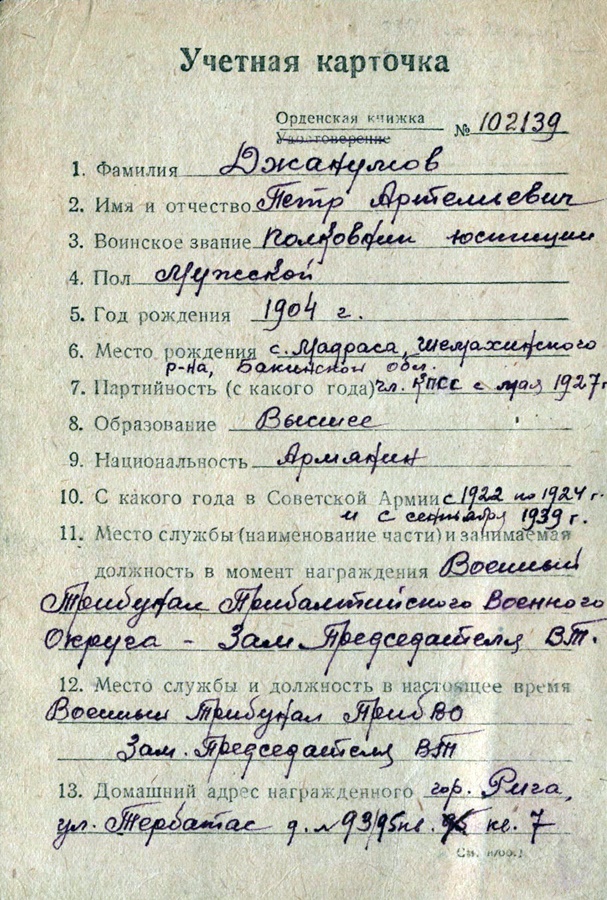 Учетная карточка
Орденская книжка
Удостоверение № 102139
1. Фамилия Джанумов
2. Имя и отчество Петр Артемьевич
3. Воинское звание полковник юстиции
4. Пол Мужской
5. Год рождения 1904 г.
6. Место рождения с. Мадраса, Шемахинского
р-на, Бакинской обл.
7. Партийность (с какого года) чл. КПСС с мая 1927 г
8. Образование Высшее
9. Национальность Армянин
10. С какого года в Советской Армии с 1922 по 1924 г.
и с сентября 1939 г.
11. Место службы (наименование части) и занимаемая
должность в момент награждения Военный
Трибунал Прибалтийского Военного
Округа - Зам Председателя ВТ.
12. Место службы и должность в настоящее время
Военный Трибунал ПрибВО
Зам. Председателя ВТ
13. Домашний адрес награжденного гор. Рига,
ул. Тербатас д. № 93/95 кв. кв. 7
См. н/об.